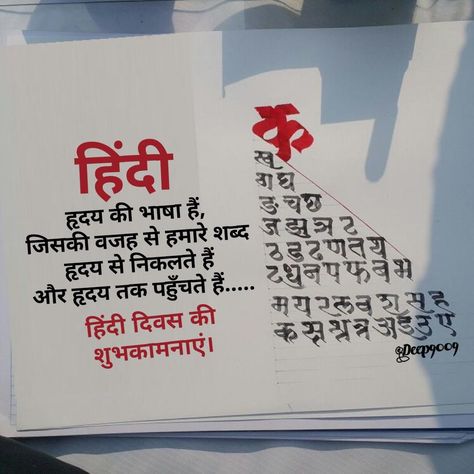 हिंदी
हृदय की भाषा हैं,
जिसकी वजह से हमारे शब्द
हृदय से निकलते हैं
और हृदय तक पहुँचते हैं.....
हिंदी दिवस की
शुभकामनाएं।
क
ख
ग घ
ङ च छ
ज झ ञ ट
ठ ड ढ ण त थ
द ध न प फ ब भ
म य र ल व श स ह
क्ष त्र अ इ उ ए
@Deep9009